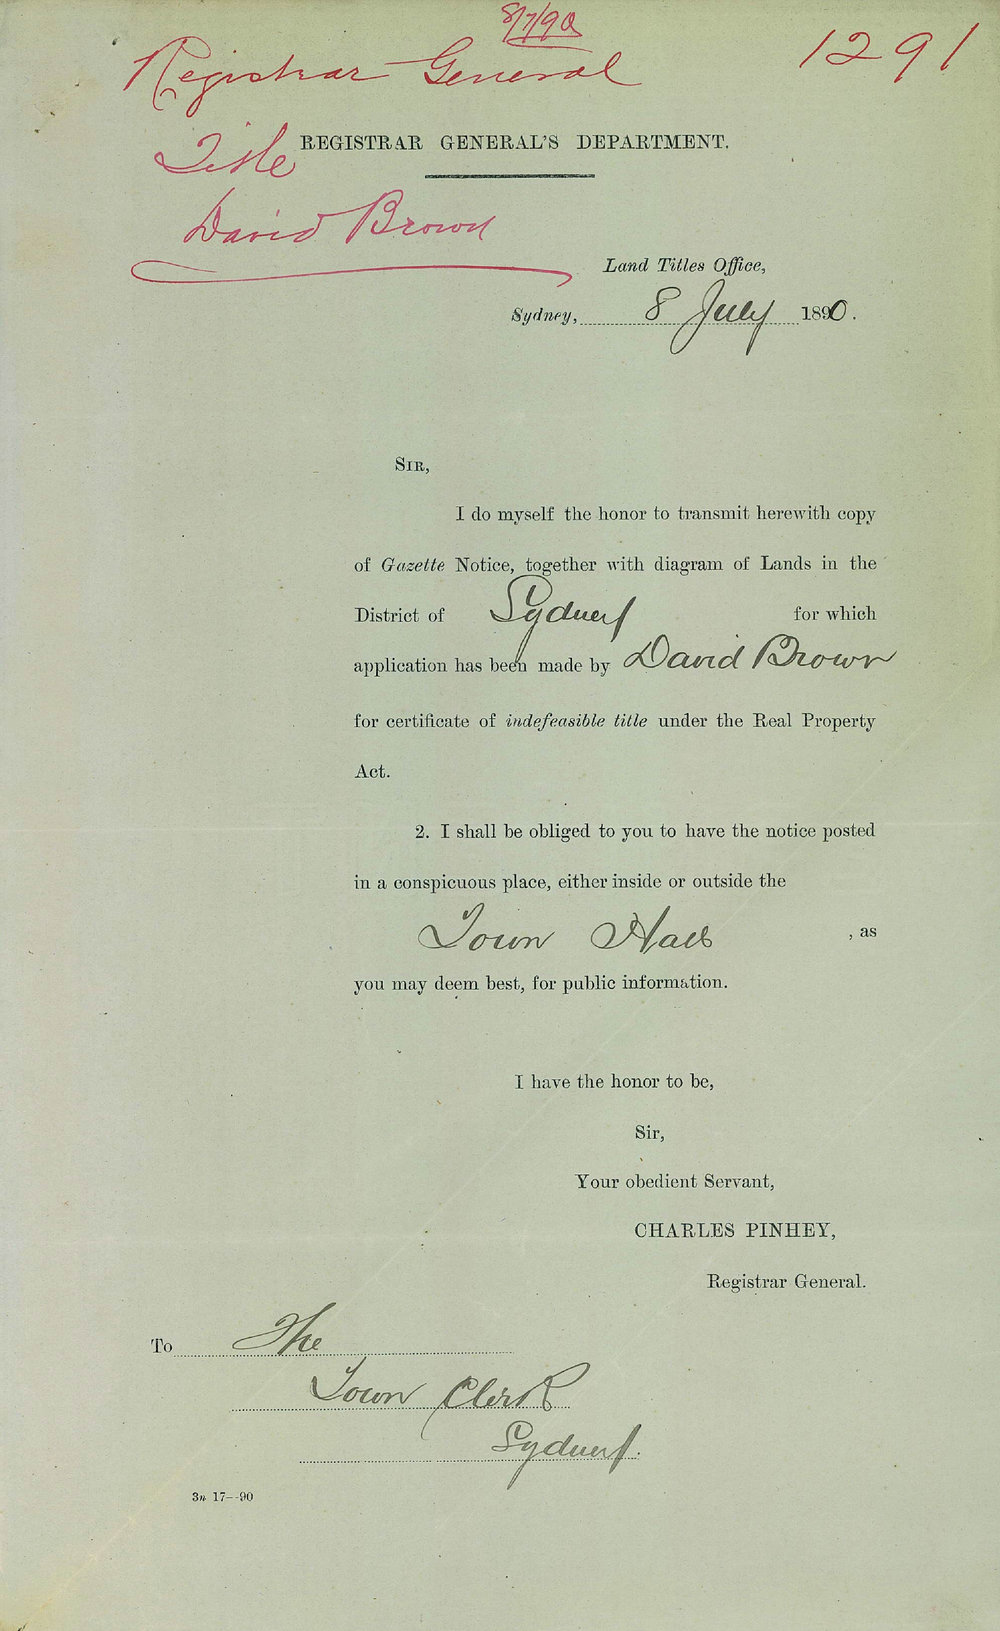 8/7/90
Registrar General
1291
REGISTRAR GENERAL'S DEPARTMENT.
Title
David Brown
Land Titles Office,
Sydney, 8 July 1890.
SIR,
I do myself the honor to transmit herewith copy
of Gazette Notice, together with diagram of Lands in the
District of Sydney for which
application has been made by David Brown
for certificate of indefeasible title under the Real Property
Act.
2. I shall be obliged to you to have the notice posted
in a conspicuous place, either inside or outside the
Town Hall , as
you may deem best, for public information.
I have the honor to be,
Sir,
Your obedient Servant,
CHARLES PINHEY,
Registrar General.
To The
Town Clerk
Sydney.
3n 17--90